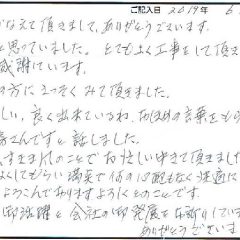 ご記入日 2019年 6
なえて頂きまして、ありがとうございます。
と思っていました。とてもよく工事をして頂き
感謝しています。
の方にさっそくみて頂きました。
しい、良く出来ているね、お褒めの言葉をもら
さんですと話しました。
のことでお忙しい中きて頂きました
よくしてもらい 何の心配もなく快適に
ようこんでおりますようにとのことです。
御活躍と会社の御発展をお祈りしていま
ありがとうございま